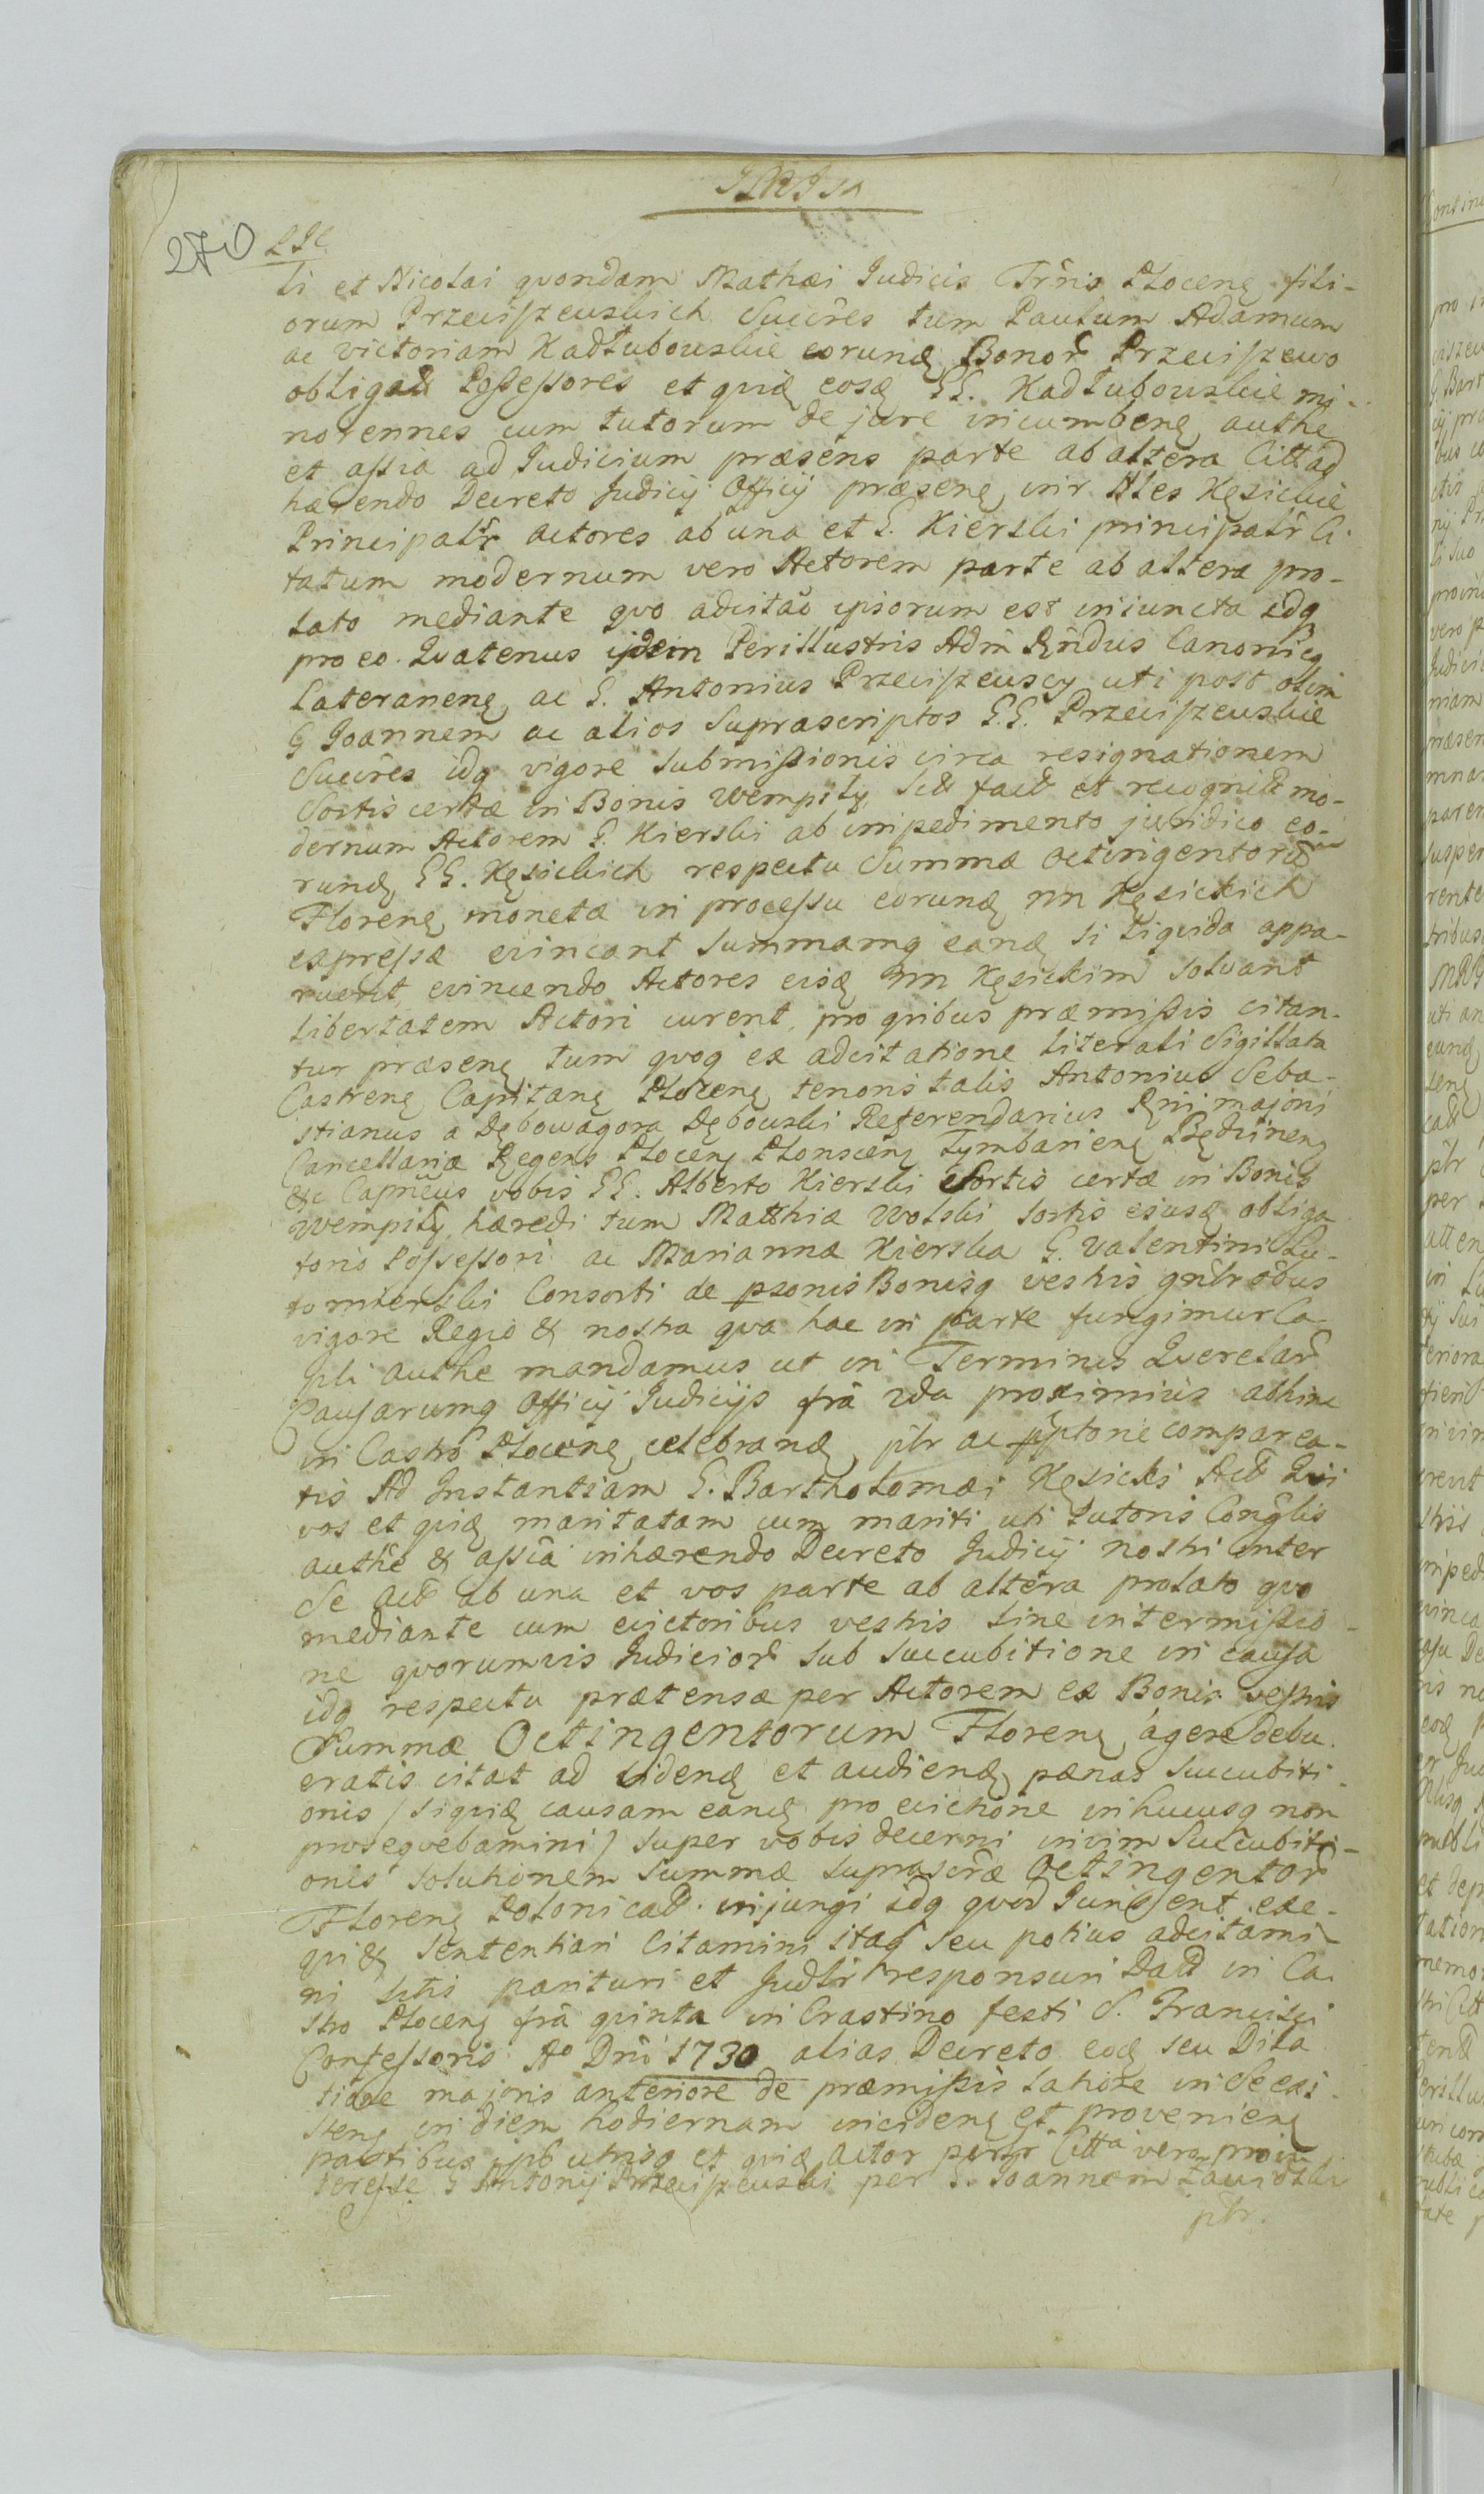 270
li et Nicolai quondam Mathæi Judicis Trrnis Płocenę fili-
orum Przeciszewskich Succres tum Paulum Adamum
ac Victoriam Kadłubowskie eorunę Bonor Przeciszewo
obligat Possessores et quię eosę GG. Kadłubowskie mi-
norennes cum tutorum de jure incumbenę authe
et assia ad Judicium præsens parte ab altera Citt ad
hærendo Decreto Judicij Officij præsenę inr Nles Kęsickie
Principalr Actores ab una et G. Kierski principalr Ci-
tatum modernum vero Actorem parte ab altera pro-
lato mediante quo adcitao ipsorum est iniuncta idq
pro eo. Quatenus ijdem Perillustris Adm Rndus Canonicq
Lateranenę ac G. Antonius Przeciszewscy uti post olim
G Joannem ac alios suprascriptos G.G. Przeciszewskie
Succres idq vigore submissionis circa resignationem
Sortis certæ in Bonis Wempiły sibi fact et recognitt mo-
dernum Actorem G. Kierski ab impedimento juridico eo-
runę GG. Kęsickich respectu Summæ Octingentoru
Florenę monetæ in processu eorunę nn Kęsickich
expressæ evincant summamq eanę si liquida appa-
ruerit, evincendo Actores eisę nn Kęsickim solvant
libertatem Actori curent, pro quibus præmissis citan-
tur præsenę tum quoq ex adcitatione literali Sigillata
Castrenę Capitanę Płocenę tenoris talis Antonius Seba-
stianus a Dębowagora Dębowski Referendarius Rni majoris
Cancellariæ Regens Płocenę Płonscenę Tymbarienę Będzinenę
&c Capneus vobis GG. Alberto Kierski Sortis certæ in Bonis
Wempiły hæredi tum Matthiæ Wolski sortis ejusę obliga
torio Possessori ac Marianna Kierska G. Valentini Lu-
tomierski Consorti de psonis Bonisq vestris gnlrbus
vigore Regio & nostra qua hac in parte fungimur Ca
pli authe mandamus ut in Terminis Querelar
Causarumq Officij Judicijs fra 2da proximius abhinc
in Castro Płocenę celebranę plr ac pptorie comparea-
tis Ad Instantiam G. Bartholomæi Kęsicki Act Qui
vos et quię maritatam cum mariti uti tutoris Conglis
authe & assia inhærendo Decreto Judicij nostri inter
Se Act ab una et vos parte ab altera prolato quo
mediante cum evictoribus vestris sine intermissio-
ne quorumvis Judicior sub succubitione in causa
idq respectu prætensæ per Actorem ex Bonis vestris
Summæ Octingentorum Florenę agere debu-
eratis citat ad videnę et audienę pænas succubiti-
onis /siquię causam eanę pro evictione in hucusq non
proseqvebamini/ super vobis decerni invim Succubiti-
onis solutionem summæ suprascræ Octingentor
Florenę Polonicat injungi idq quod Juris sent exe-
qui & sententiari Citamini itaq seu potius adcitami-
ni sitis parituri et Judlr responsuri Datt in Ca-
stro Płocenę fra quinta in Crastino festi S. Francisci
Confessoris Ao Dni 1730 alias Decreto eoę seu Dila-
tione majoris anteriore de præmissis latione in se exi-
stenę in diem hodiernam incidenę et provenienę
partibus ipb utrisq et quię Actor persr Citta vera pro in
teresse G Antonij Przeciszewski per G. Joannem
plr.